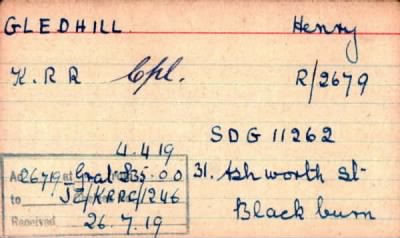 GLEDHILL. Henry
K.R.R Cpl. R/2679
SDG 11262
4.4.19
26719 Grat £35-0-0 31. Ashworth St-
to JE/KRRC/1246 Blackburn
Received 26.7.19